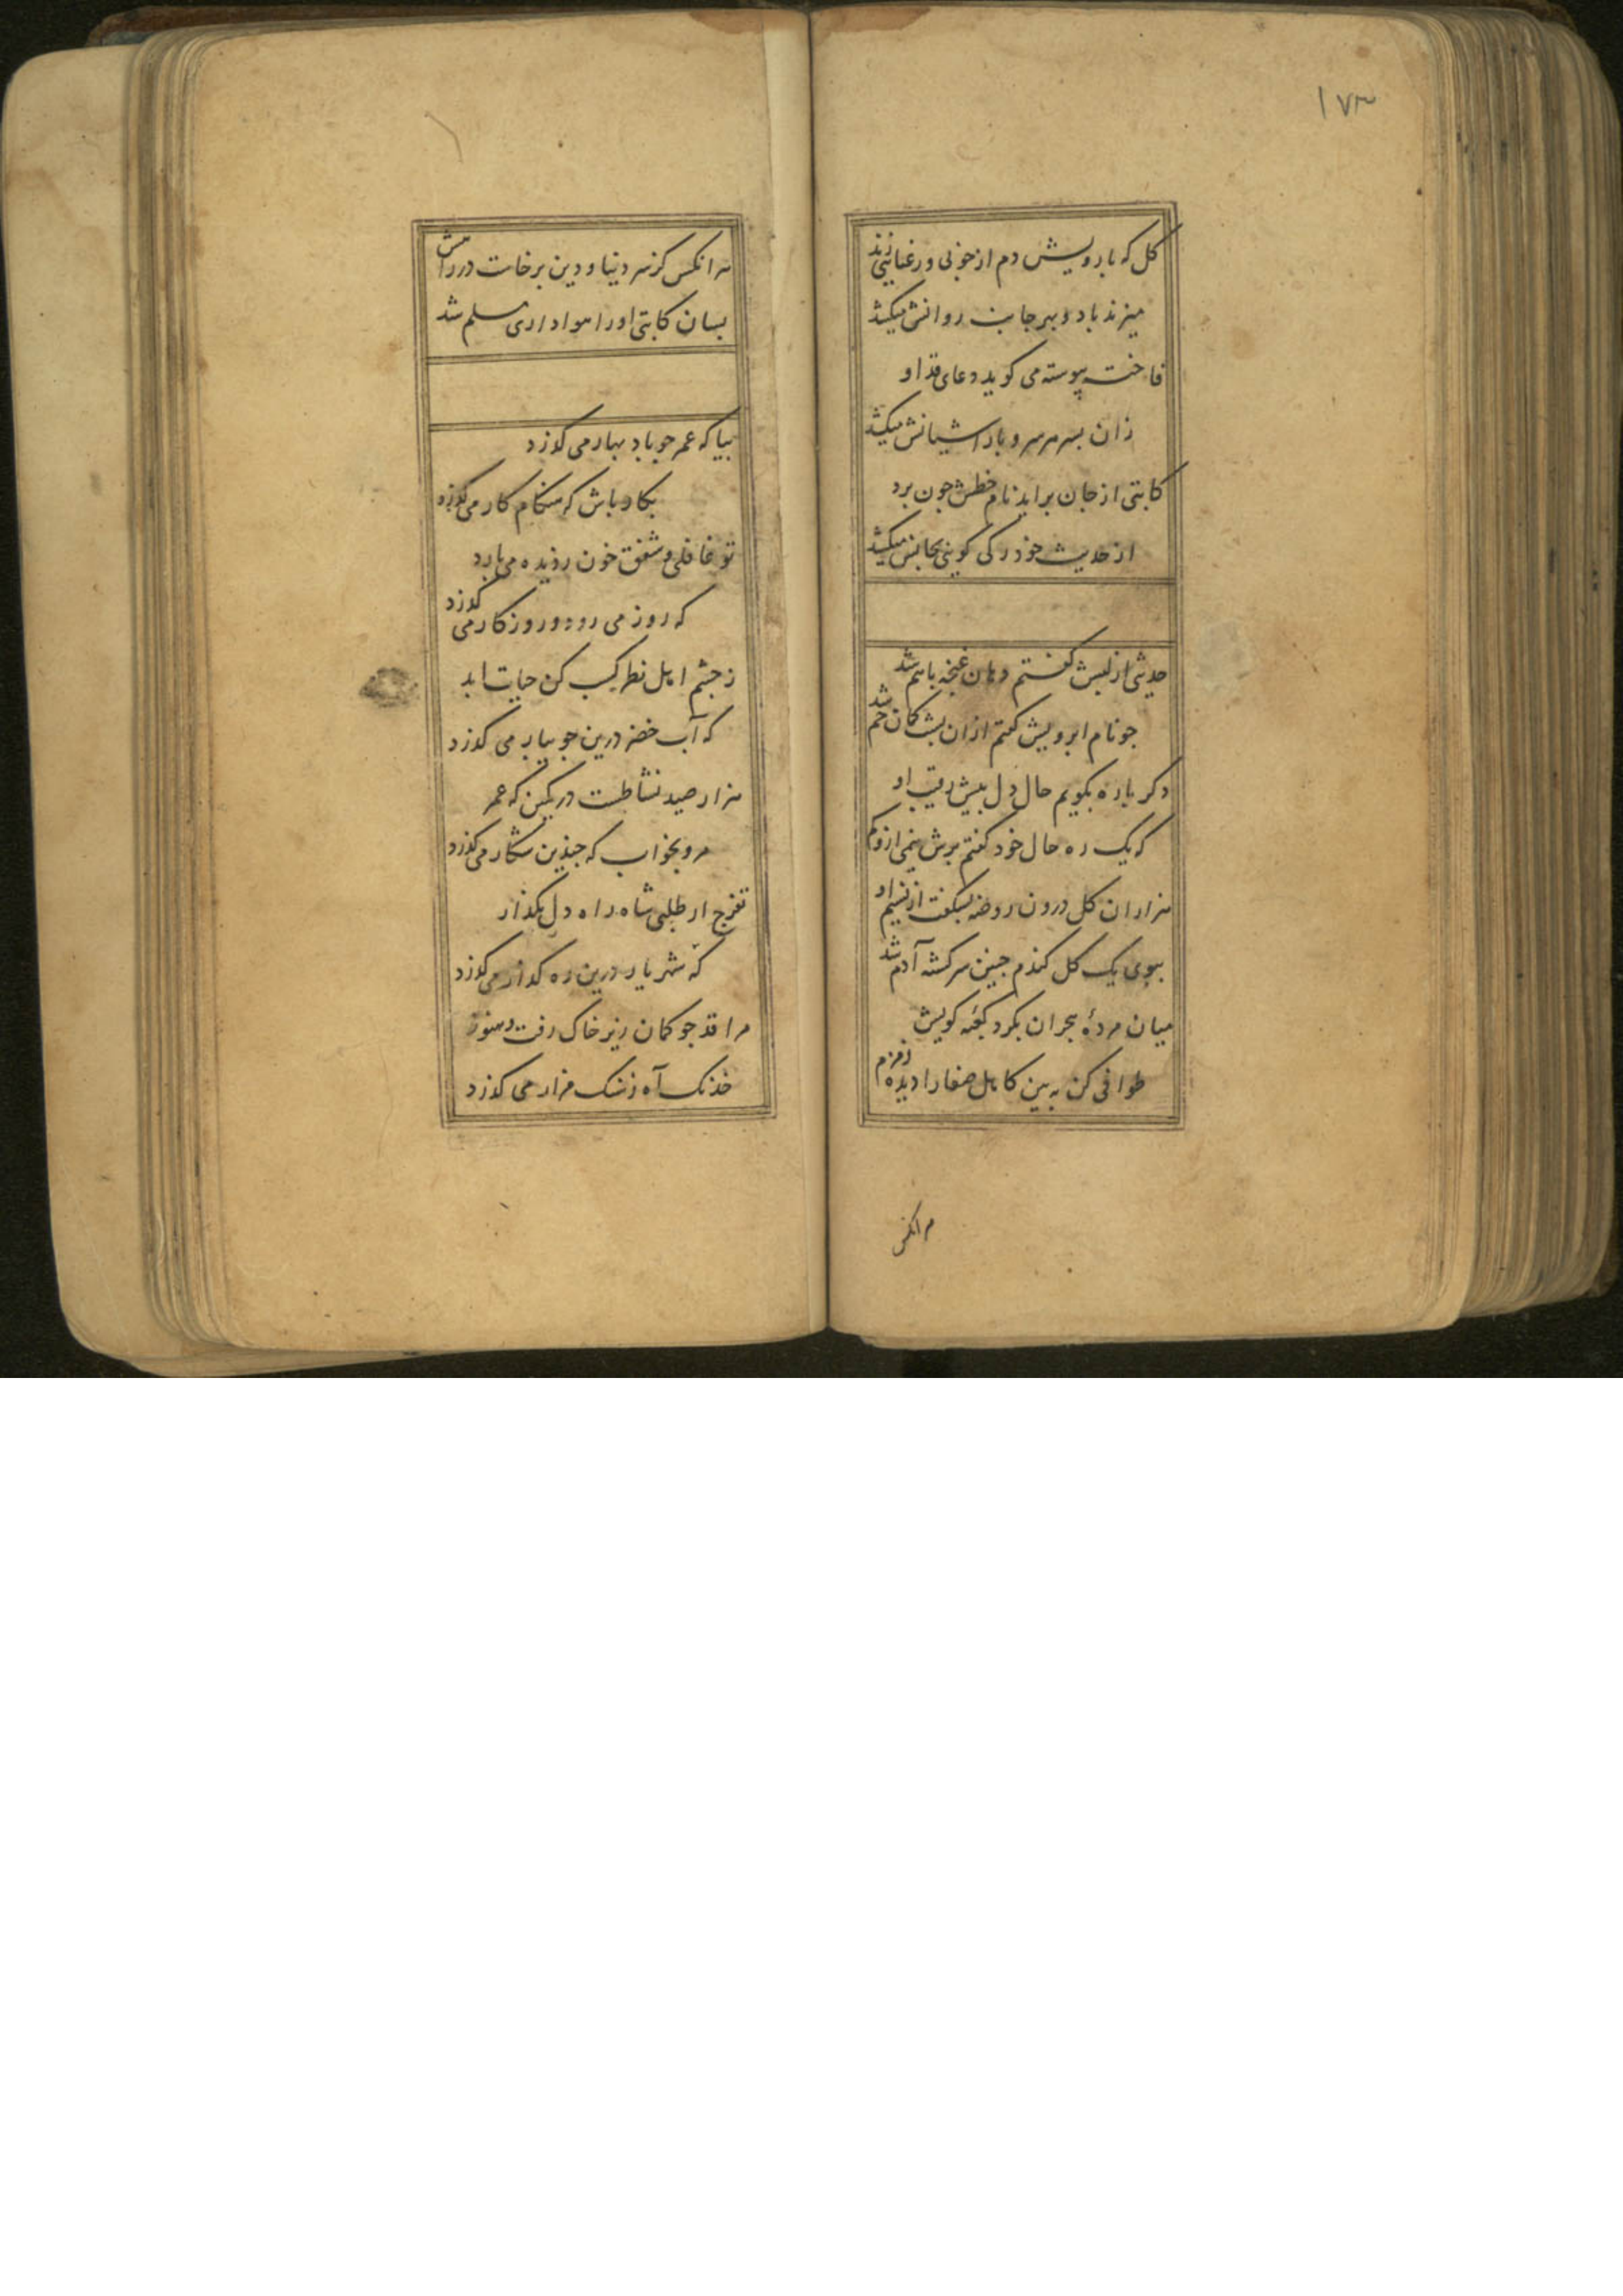 ۱۷۳
کل که با رویش دم از خوبی و رعنایی زند
میزند باد و بهر جانب روانش میکشد
فاخته پیوسته می کوید دعای قد او
زان بسر هر سرو باد اشیانش میکشد
کاتبی از جان براید نام خطش چون برد
از حدیث خود رکی کویی بجانش میکشد
حدیثی از لبش کفتم دهان غنچه باهم شد
جو نام ابرویش کفتم ازان بشت کمان خم شد
دکر باره بکویم حال دل بیش رقیب او
که یک ره حال خود کفتم برش نیمی ازو کم
هزاران کل درون روضه بشکفت از نسیم او
ببوی یک کل کندم جنین سرکشته آدم شد
میان مردهٔ هجران بکرد کعبه کویش
طوافی کن ببین کامل صفا را دیده زمزم
هر انکس
هر انکس کز سر دنیا و دین برخاست در راهش
بسان کاتبی او را هواداری مسلم شد
بیا که عمر جو باد بهار می کذرد
بکار باش که هنکام کار می کذرد
تو غافلی و شفق خون ز دیده می بارد
که روز می رود و روزکار می کذرد
ز جشم اهل نظر کسب کن حیات ابد
که آب خضر درین جویبار می کذرد
هزار صید نشاطست در کمین که عمر
مرو بخواب که جندین شکار می کذرد
تفرج ار طلبی شاه راه دل مکذار
که شهریار درین ره کذار می کذرد
مرا قد جو کمان زیر خاک رفت و هنوز
خدنک آه ز سنک مزار می کذرد